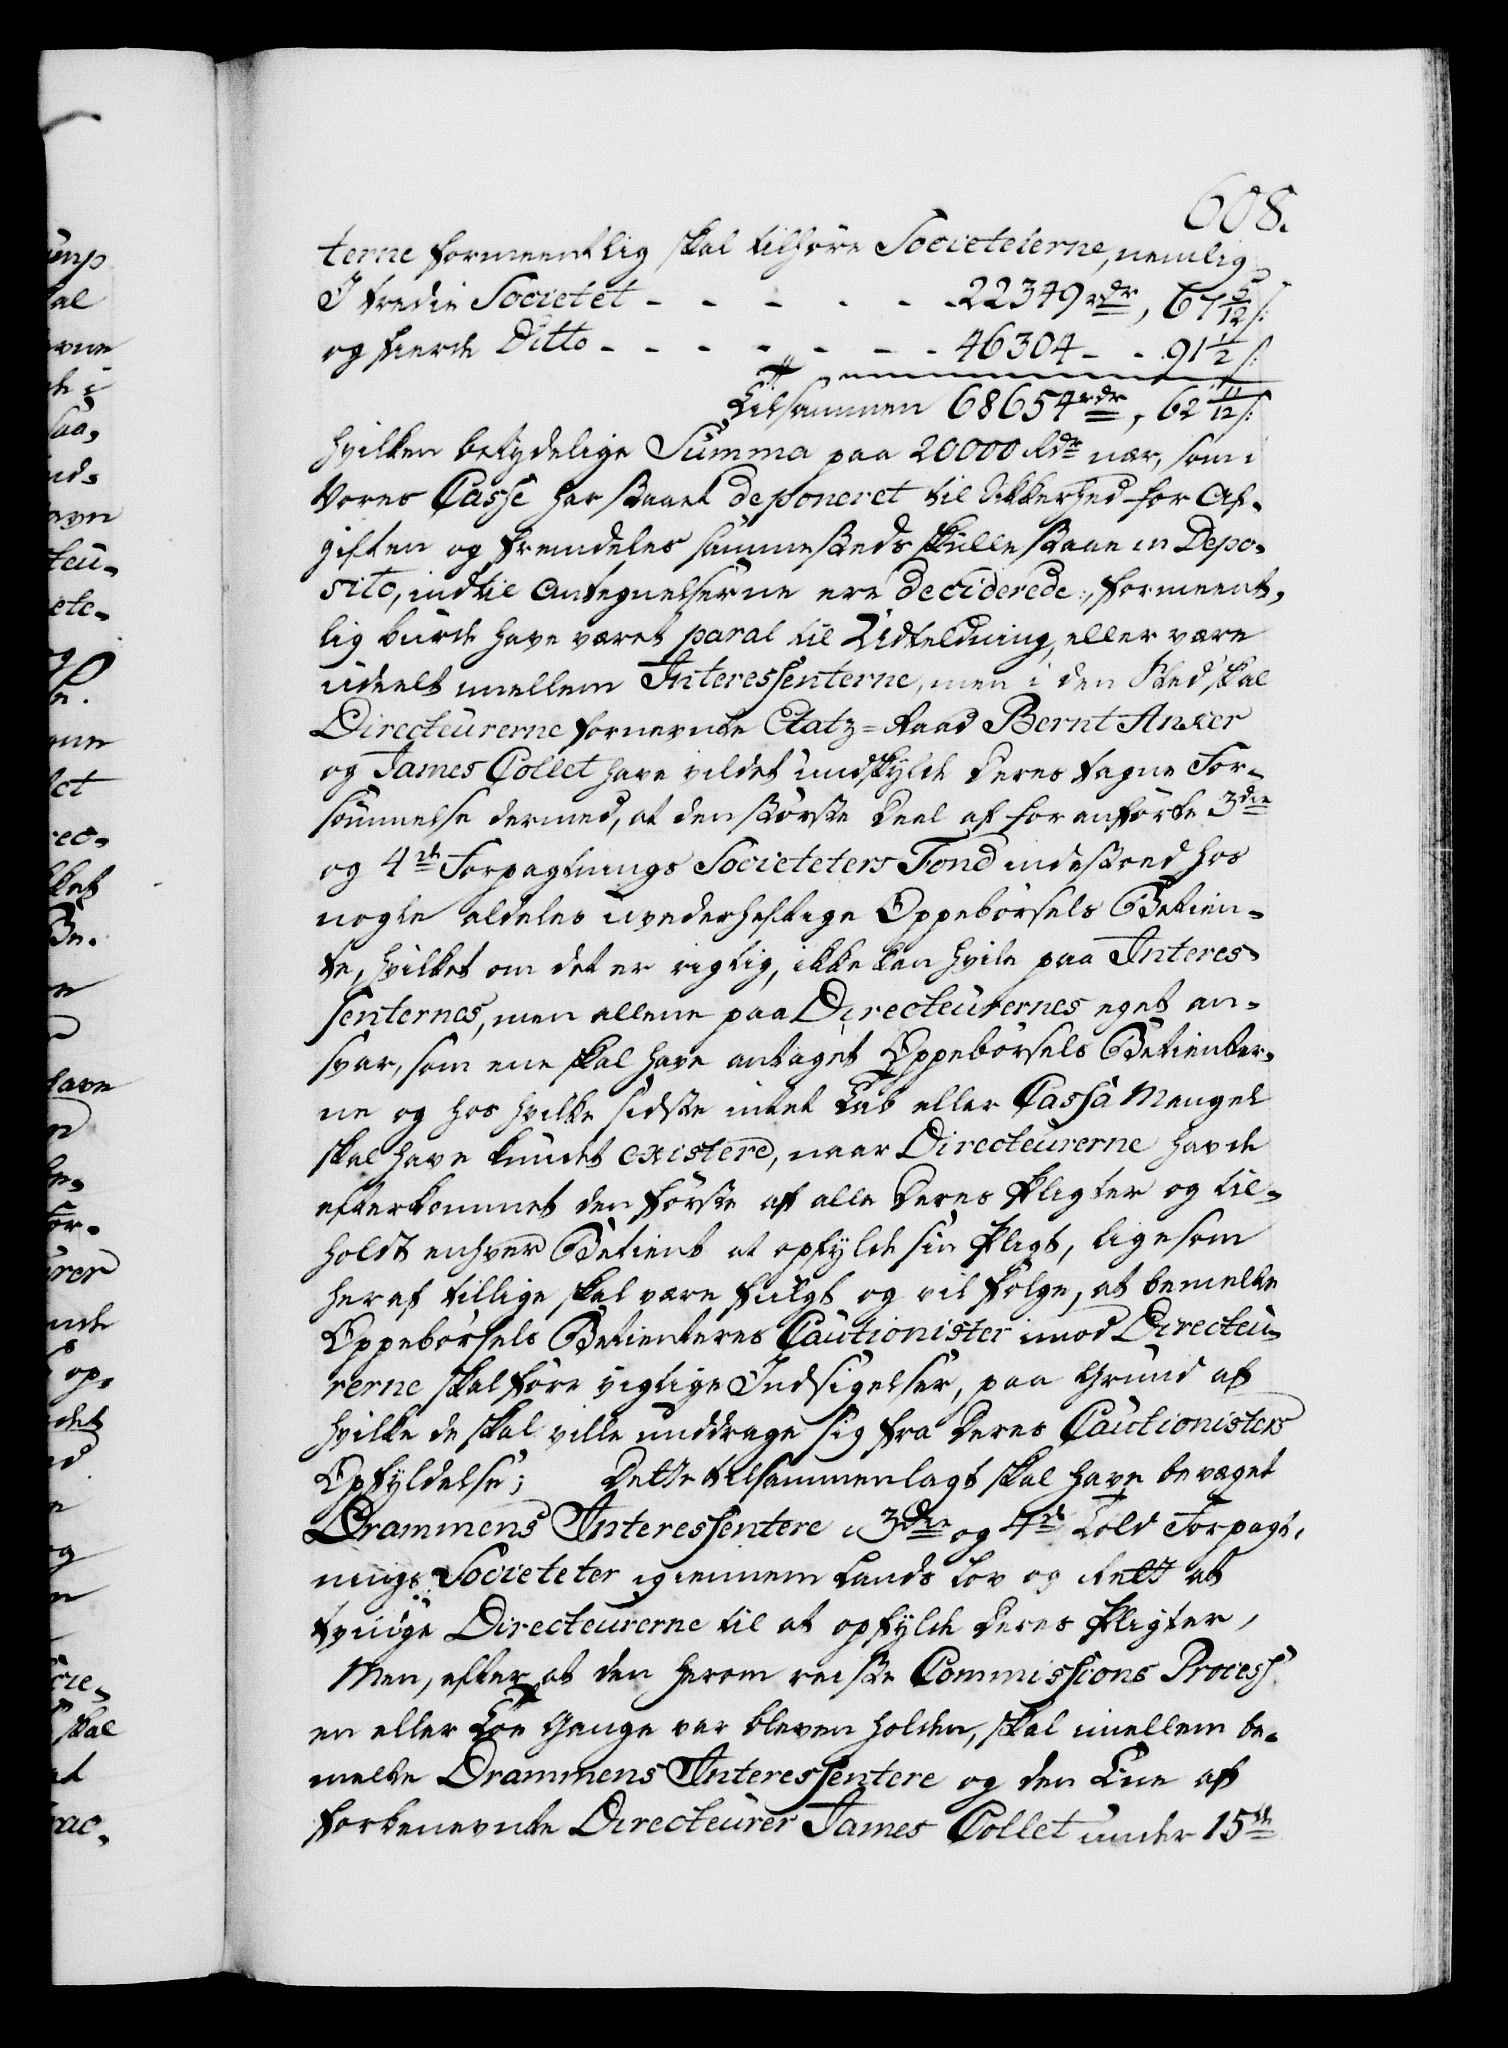 608.
terne formeentlig skal tilhøre Societeterne, nemlig
I tredie Societet - - - - - - - 22349 rdr, 67 5/12 s:
og fierde Ditto - - - - - - - - 46304 - - 91 1/2 s:
Tilsammen 68654 rdr, 62 11/12 s:
hvilken betydelige Summa paa 20000 Rdr nær, som i
Vores Casse har staaet deponeret til Sikkerhed for Af-
giften og fremdeles sammesteds skulle staae in Depo-
sito, indtil Antegnelserne ere deciderede, formeent-
lig burde have været parat til Uddeeling, eller være
udeelt mellem Interessenterne, men i den Sted skal
Directeurerne fornevnte Etatz-Raad Bernt Anker
og James Collet have vildet undskylde deres tagne For-
sømmelse dermed, at den største Deel af foranførte 3die
og 4de Forpagtnings Societeters Fond indestoed hos
nogle aldeles uvederheftige Oppebørsels Betien-
te, hvilket om det er rigtig, ikke kan hvile paa Interes-
senternes, men allene paa Directeurernes eget an-
svar, som ene skal have antaget Oppebørsels Betienter-
ne og hos hvilke sidste intet Tab eller Cassa Mangel
skal have kundet existere, naar Directeurerne havde
efterkommet den første af alle deres Pligter og til-
holdt enhver Betient at opfylde sin Pligt, ligesom
heraf tillige skal være fulgt og vil følge, at bemelte
Oppebørsels Betienteres Cautionister imod Directeu-
rerne skal føre vigtige Indsigelser, paa Grund af
hvilke de skal ville unddrage sig fra deres Cautionisters
Opfyldelse; Dette tilsammenlagt skal have bevæget
Drammens Interessentere i 3die og 4de Told Forpagt-
nings Societeter igiennem Lands Lov og Rett at
tvinge Directeurerne til at opfylde deres Pligter,
Men, efter at den herom reiste Commissions Process
en eller toe Gange var bleven holden, skal imellem be-
melte Drammens Interessentere og den Ene af
forbenevnte Directeurer James Collet under 15de